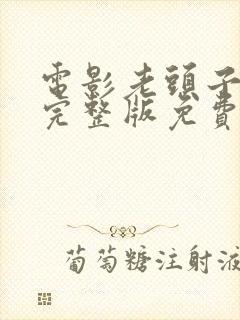 電影老頭子
完整版免費
葡萄糖注射液